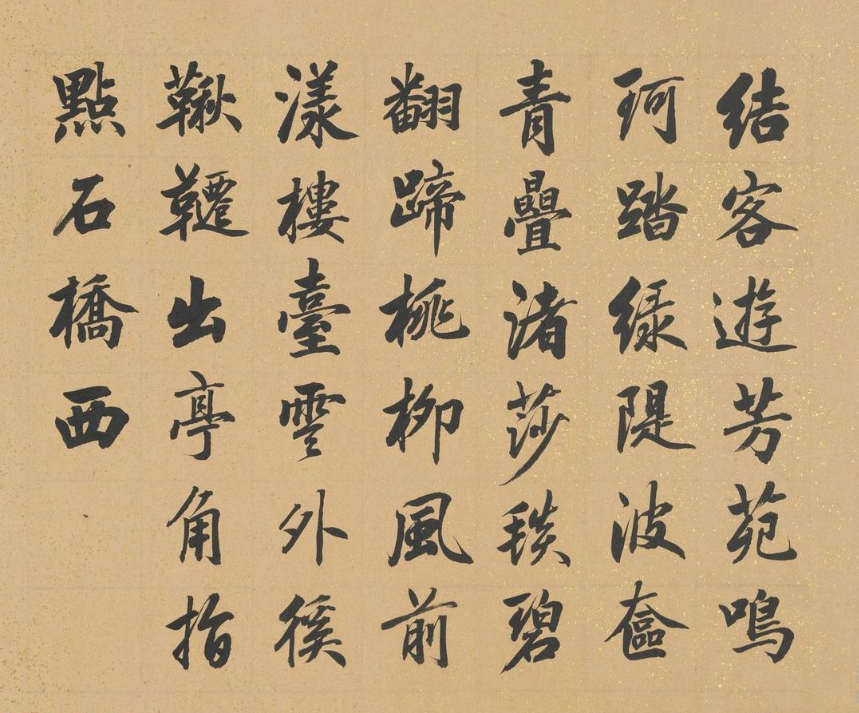 結客遊芳苑鳴
珂踏綠隄波奩
青疊渚莎毯碧
翻蹄桃柳風前
漾樓臺雲外徯
鞦韆出亭角指
點石橋西